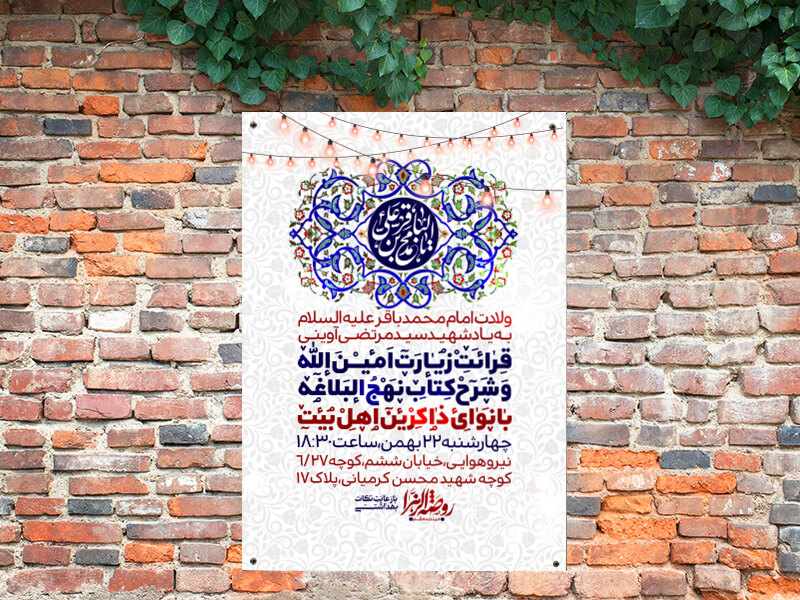 الباقر محمد بن علی
ولادت امام محمد باقر علیه السلام
به یاد شهید سید مرتضی آوینی
قرائت زیارت امین الله
و شرح کتاب نهج البلاغه
با نوای ذاکرین اهل بیت
چهارشنبه ۲۲ بهمن، ساعت ۱۸:۳۰
نیروهوایی، خیابان ششم، کوچه ۶/۲۷
کوچه شهید محسن کرمیانی، پلاک ۱۷
روضة الزهرا
با رعایت نکات
بهداشتی